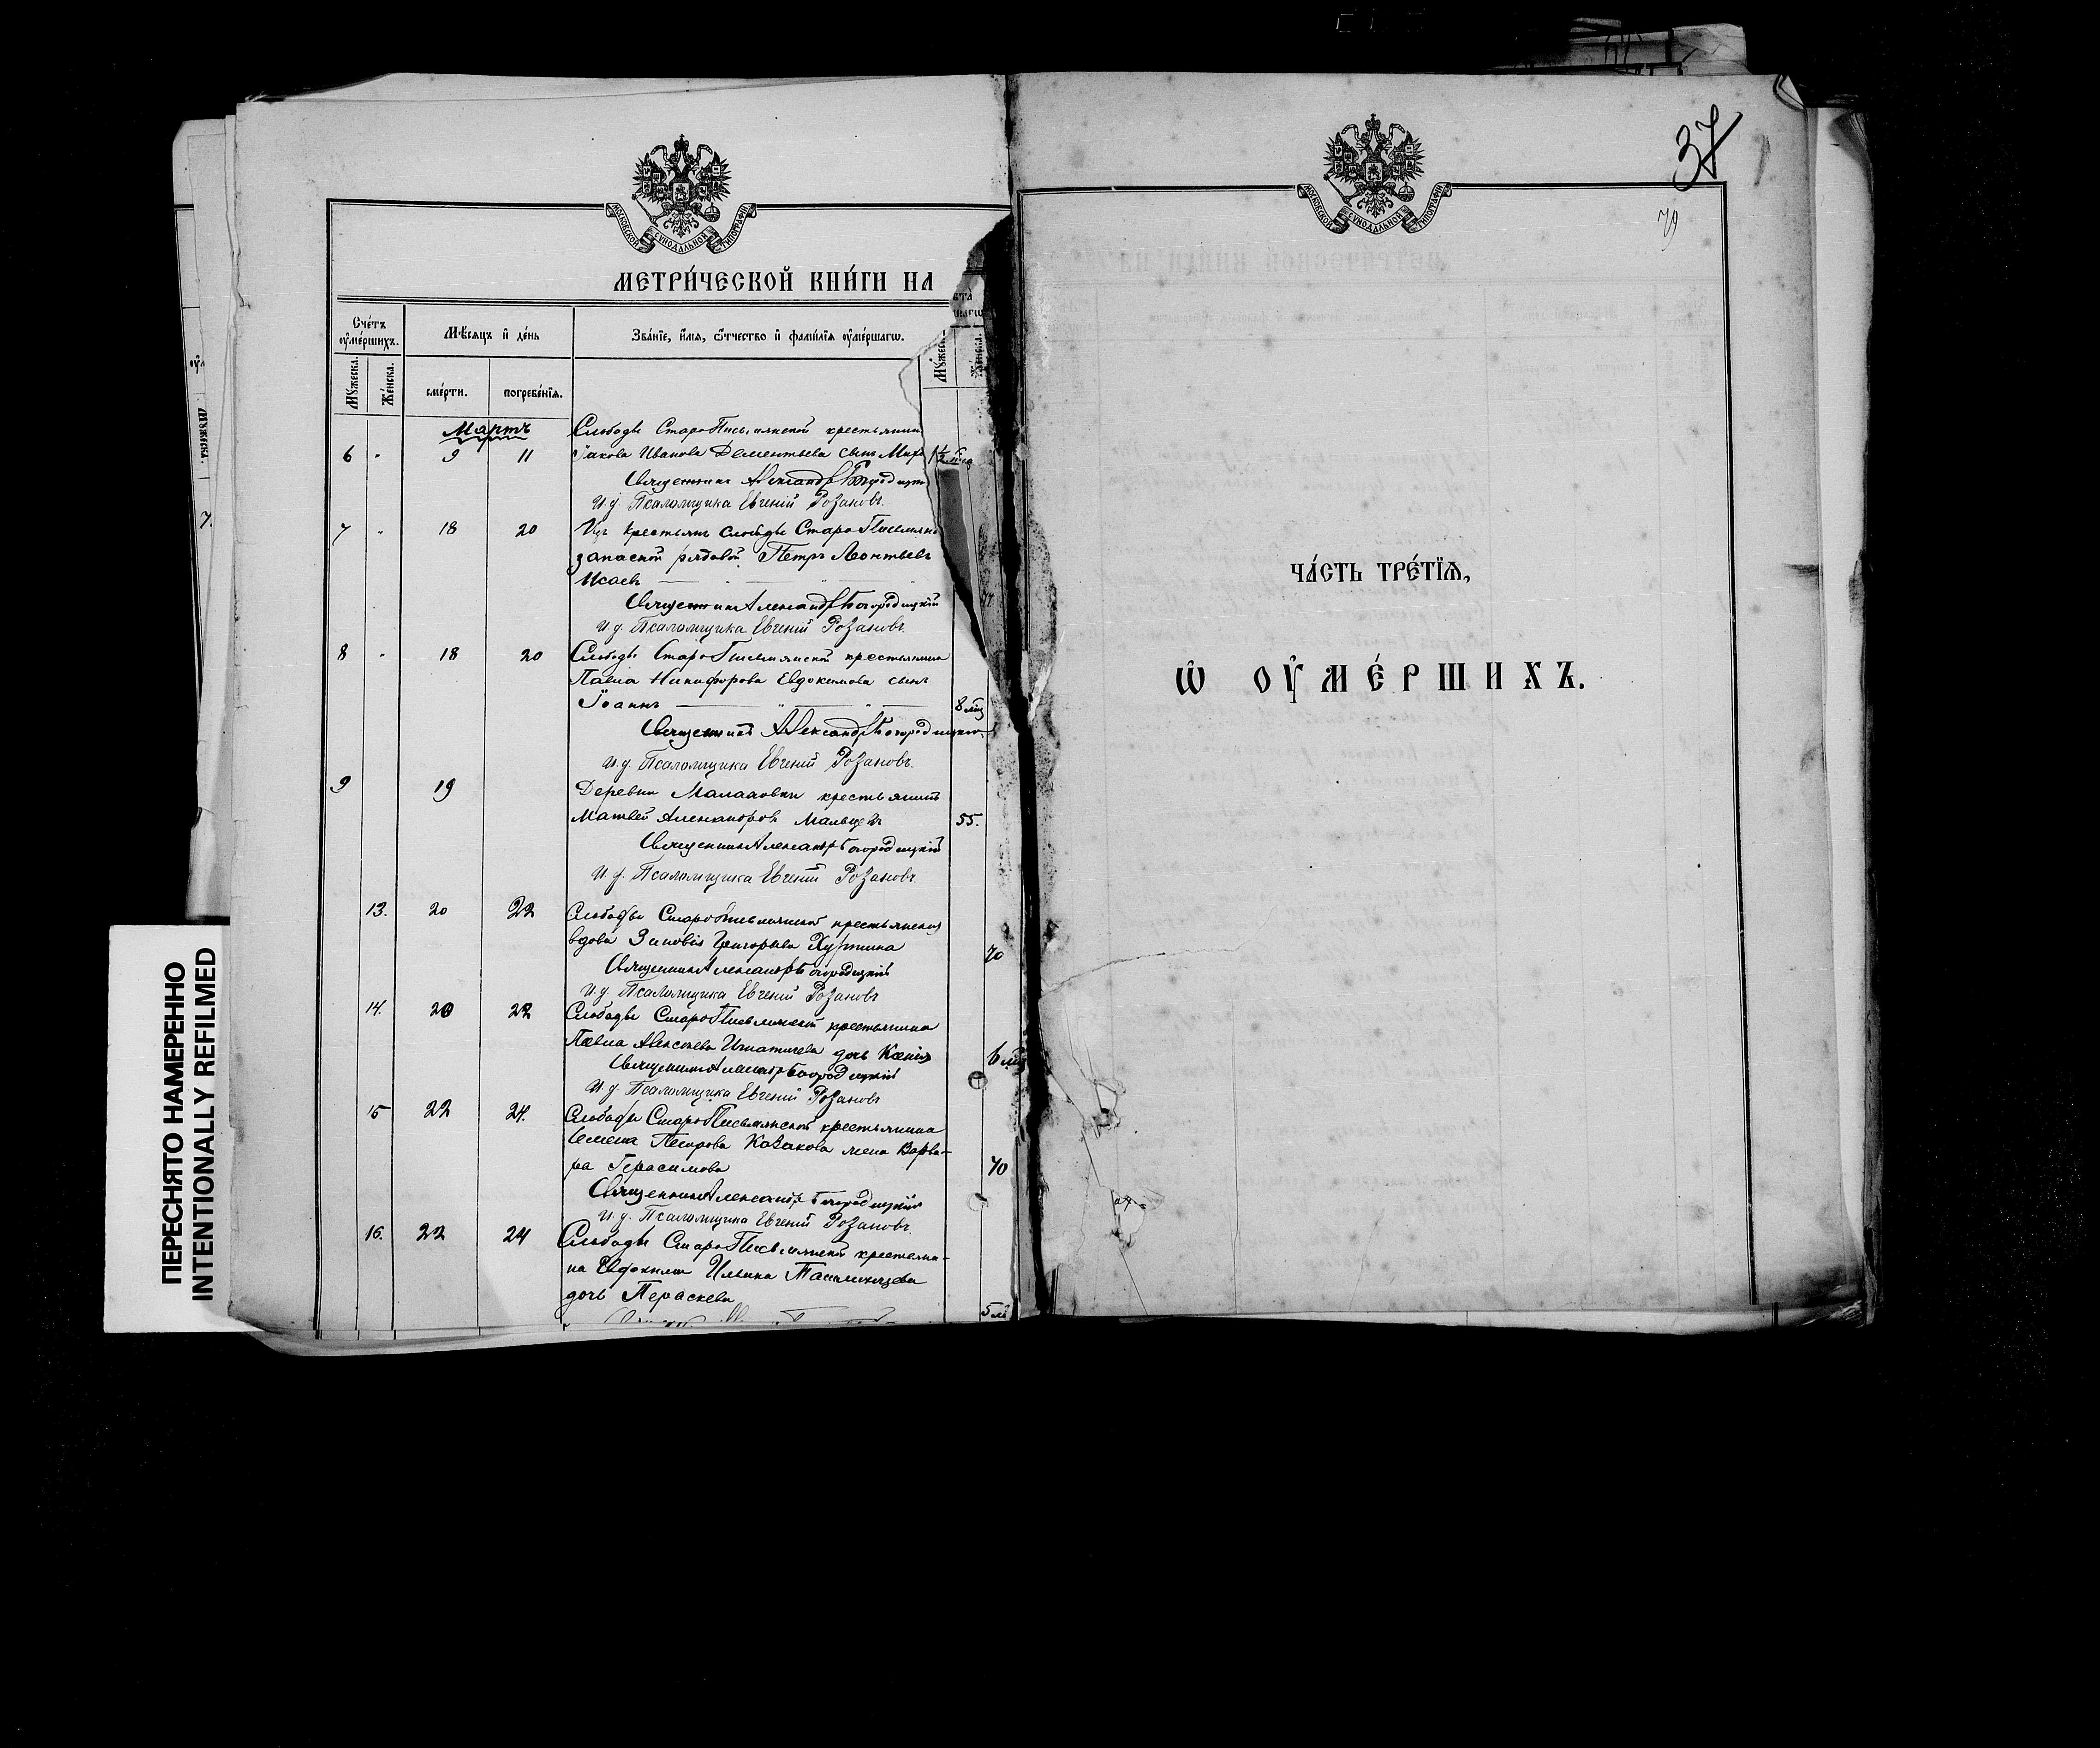 МОСКОВСКОЙ СѴНОДАЛЬНОЙ ТИПОГРАФІИ
МЕТРИ́ЧЕСКОЙ КНИ́ГИ НА
Сче́тъ ᲂу҆ме́ршихъ.
Мѣ́сяцъ и҆ де́нь
Зва́нїе, и҆́мя, ѻ҆́тчество и҆ фами́лїя ᲂу҆ме́ршагѡ.
Мꙋ́жеска.
Же́нска.
сме́рти.
погребе́нїя.
Мартъ
Слободы СтароПисьмянской крестьянина
6 " 9 11 Іакова Иванова Дементьева сынъ
Священникъ Александръ Богородицкій
И. д. Псаломщика Евгеній Розановъ.
7 " 18 20 Изъ крестьянъ слободы СтароПисьмянс
запасной рядовой Петръ Леонтьевъ
Исаевъ
Священникъ Александръ Богородицкій
И. д. Псаломщика Евгеній Розановъ.
8 " 18 20 Слободы СтароПисьмянской крестьянина
Павла Никифорова Евдокимова сынъ
Іоаннъ 8 мѣс
Священникъ Александръ Богородицкій
И. д. Псаломщика Евгеній Розановъ.
9 19 Деревни крестьянинъ
Матвей Александровъ Мальцевъ 55.
Священникъ Александръ Богородицкій
И. д. Псаломщика Евгеній Розановъ.
13. 20 22 Слободы СтароПисьмянской крестьянская
вдова Зиновія Григорьева 70
Священникъ Александръ Богородицкій
И. д. Псаломщика Евгеній Розановъ
14. 20 22 Слободы СтароПисьмянской крестьянина
Павла Алексѣева Игнатичева дочь Ксенія 6 мѣс
Священникъ Александръ Богородицкій
И. д. Псаломщика Евгеній Розановъ
15 22 24. Слободы СтароПисьмянской крестьянина
Семена Казакова жена Варва-
ра Герасимова 70
Священникъ Александръ Богородицкій
И. д. Псаломщика Евгеній Розановъ.
16. 22 24 Слободы СтароПисьмянской крестьяни-
на Евдокима Ильина
дочь Параскева
5
ПЕРЕСНЯТО НАМЕРЕННО
INTENTIONALLY REFILMED
МОСКОВСКОЙ СѴНОДАЛЬНОЙ ТИПОГРАФІИ
37
79
ЧА́СТЬ ТРЕ́ТЇѦ,
Ѡ҆ ОУ҆МЕ́РШИХЪ.